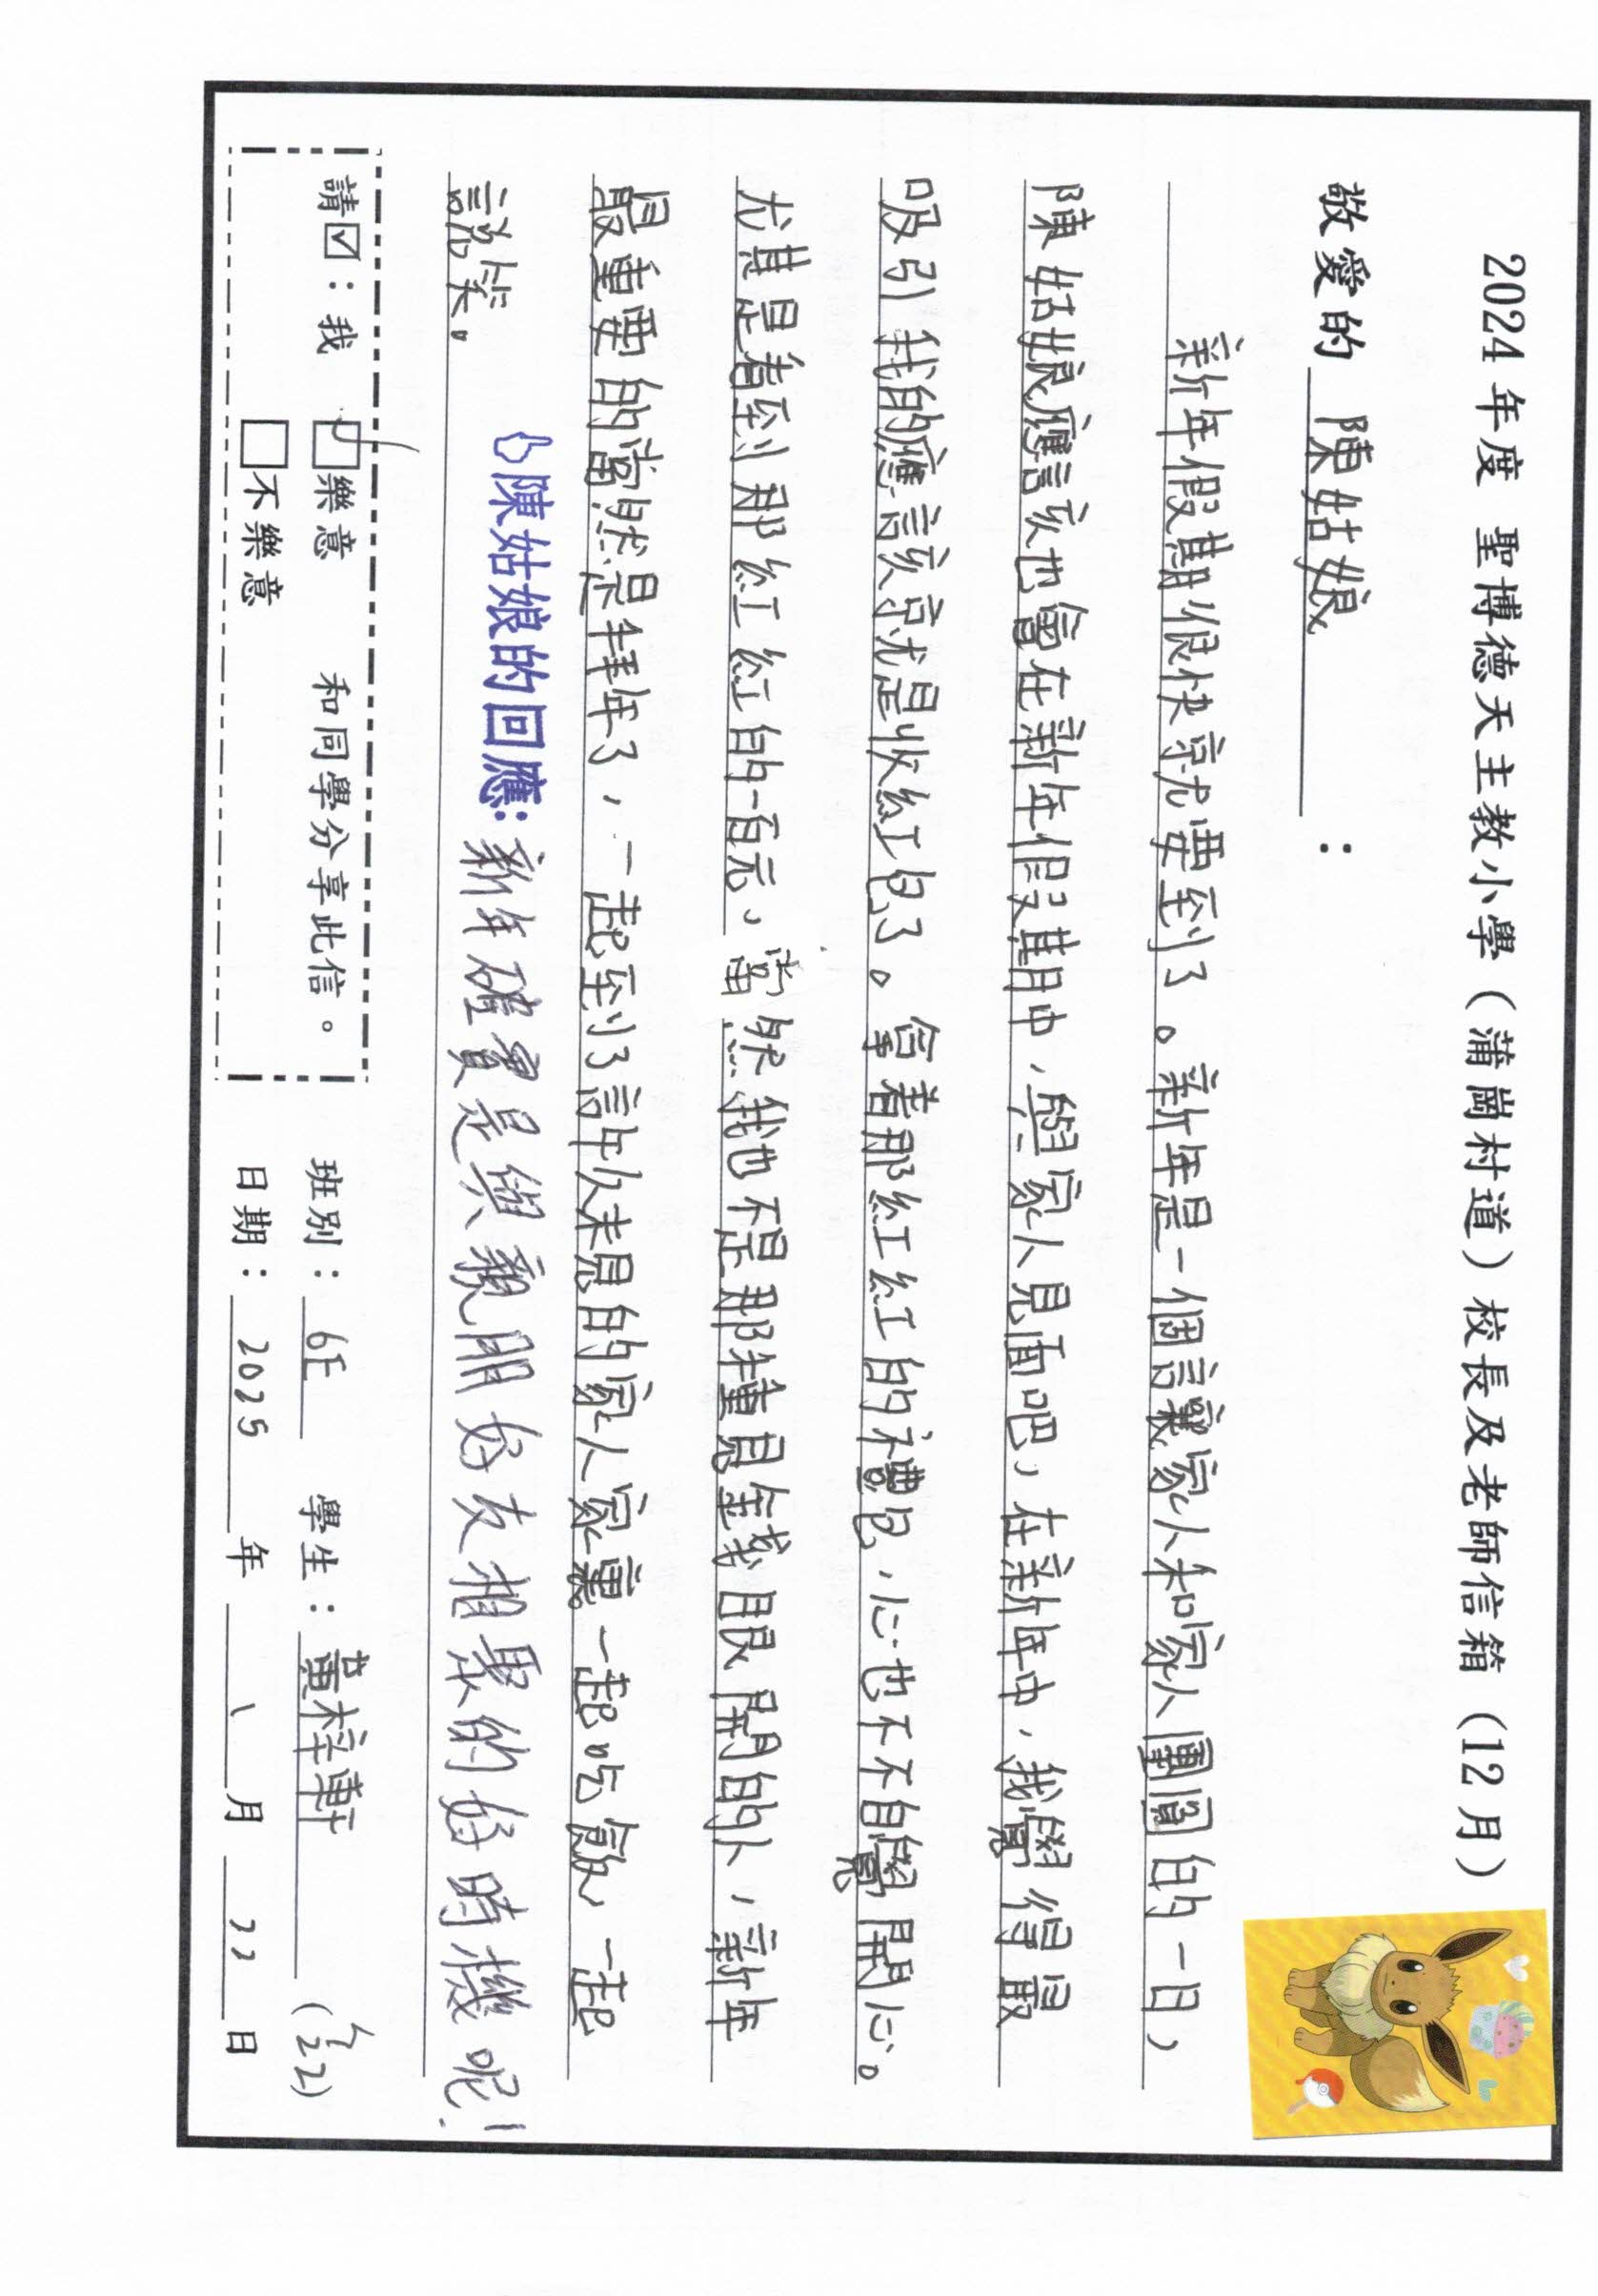 2024 年度 聖博德天主教小學（蒲崗村道）校長及老師信箱（12 月）
敬愛的 陳姑娘 ：
新年假期很快就要到了。新年是一個讓家人和家人團圓的一日，
陳姑娘應該也會在新年假期中，與家人見面吧，在新年中，我覺得最
吸引我的應該就是收紅包了。拿着那紅紅的禮包，心也不不自覺開心。
尤其是看到那紅紅的一百元，當然我也不是那種見金錢眼開的人，新年
最重要的當然是拜年了，一起到了許久未見的家人家裏一起吃飯，一起
說笑。
陳姑娘的回應：新年確實是與親朋好友相聚的好時機呢！
請☑：我 ☑樂意 和同學分享此信。 班別：6E 學生：黃梓軒 (22)
□不樂意 日期：2025 年 1 月 22 日